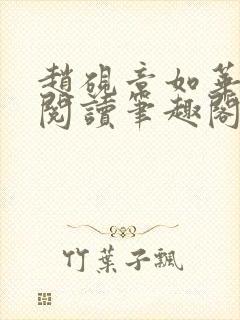 趙硯章如華
閱讀筆趣閣
竹葉子飄